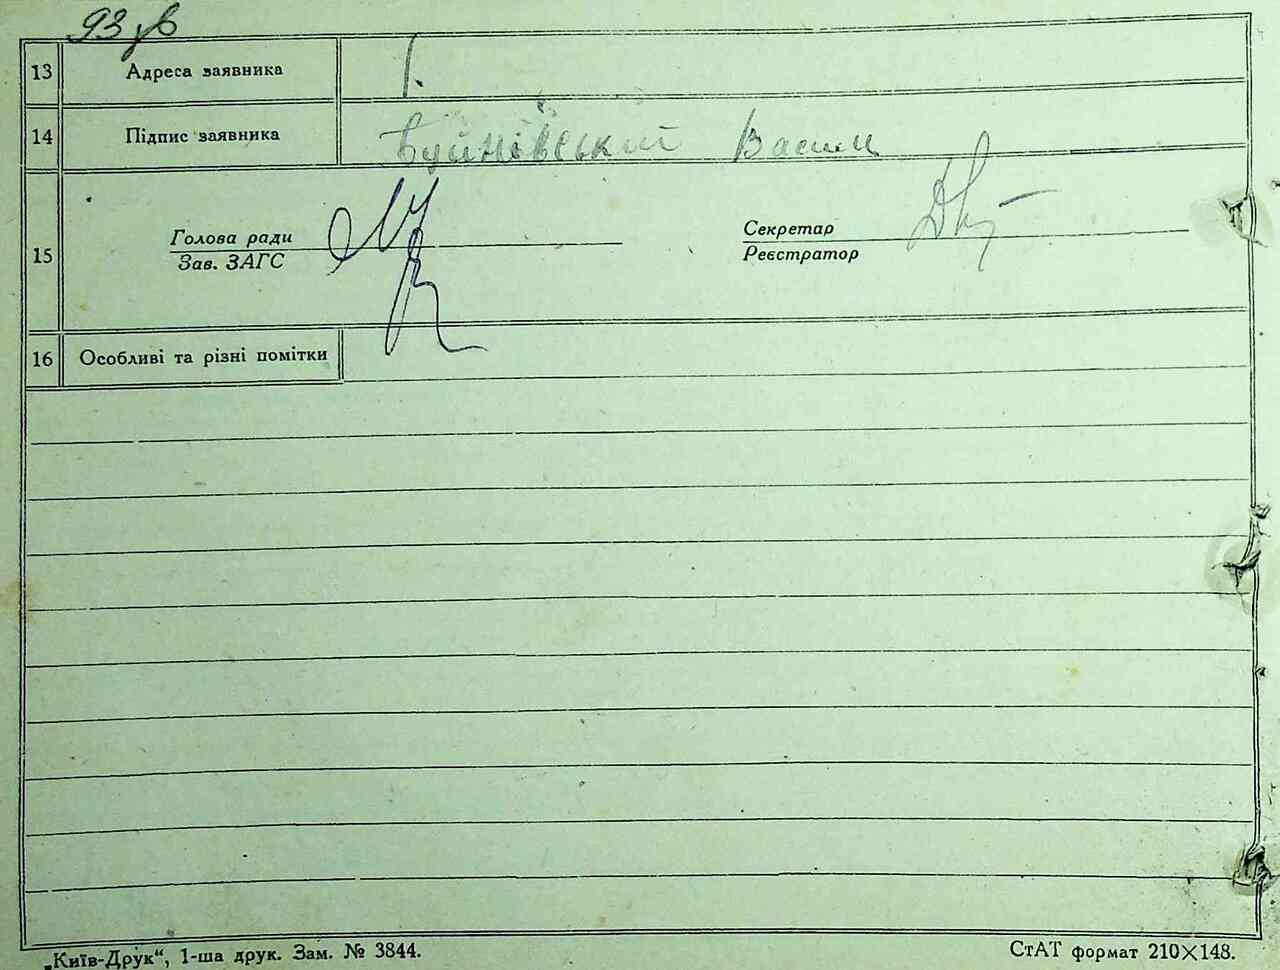 93 зв
13 Адреса заявника
14 Підпис заявника Буйнівський Васил
15 Голова ради Секретар
Зав. ЗАГС Реєстратор
16 Особливі та різні помітки
„Київ-Друк“, 1-ша друк. Зам. № 3844. СтАТ формат 210×148.